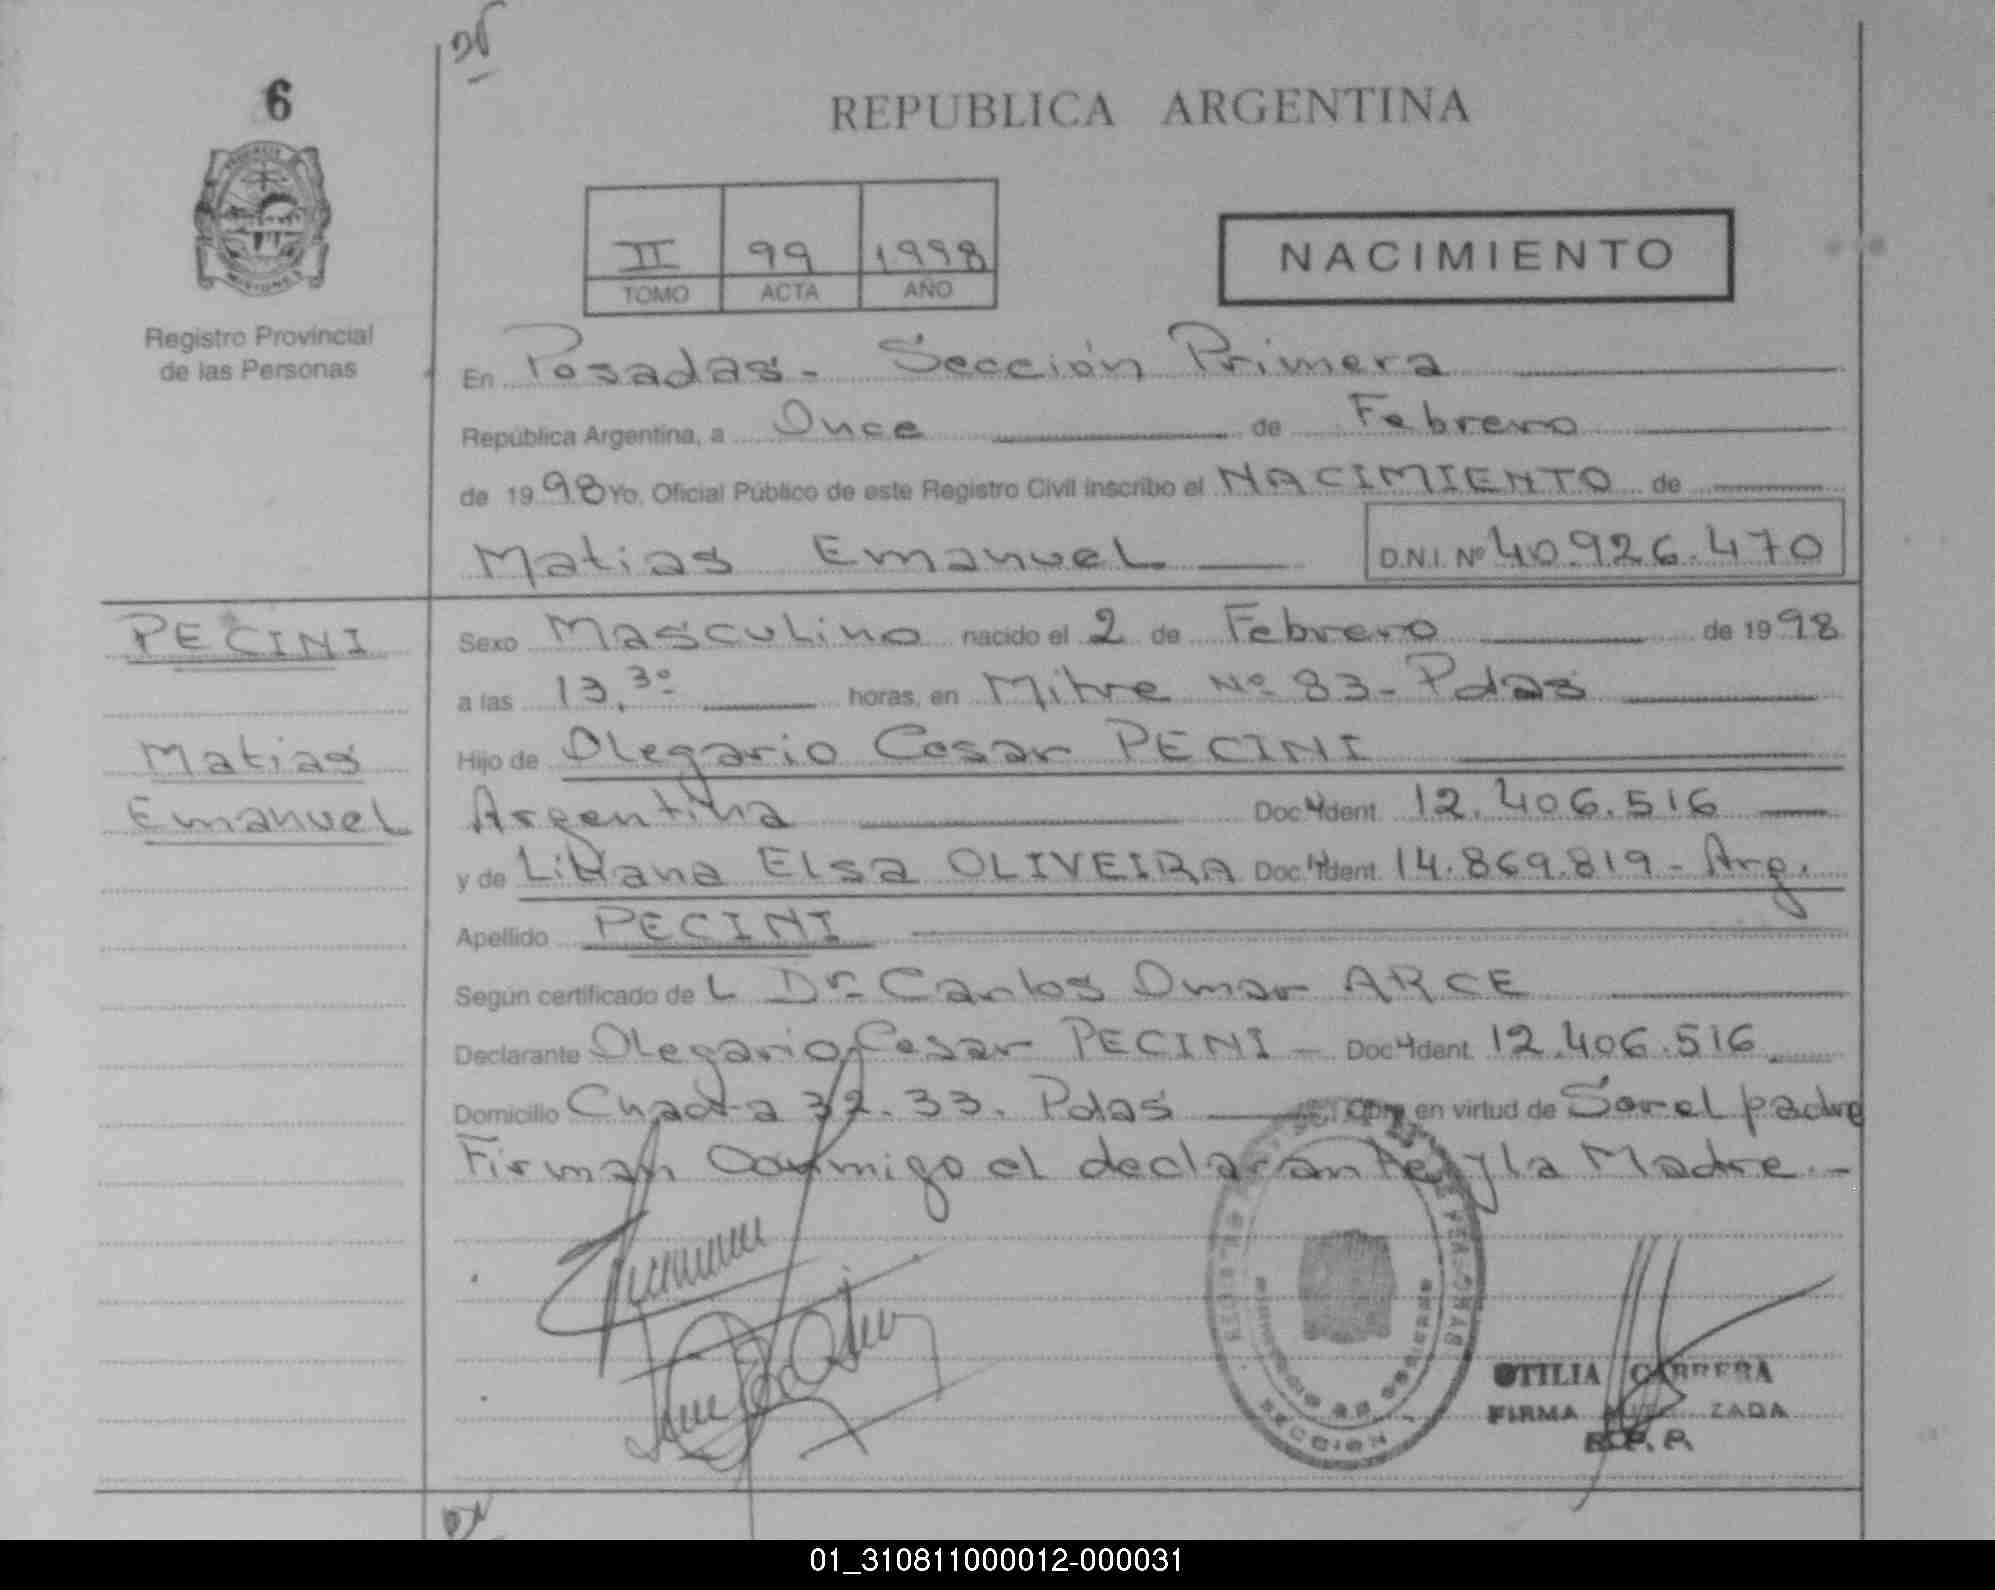 6
REPUBLICA ARGENTINA
II 99 1998
TOMO ACTA AÑO
NACIMIENTO
Registro Provincial
de las Personas
En Posadas - Sección Primera
República Argentina, a Once de Febrero
de 1998 Yo, Oficial Público de este Registro Civil inscribo el NACIMIENTO de
Matias Emanuel D.N.I. Nº 40.926.470
PECINI
Matias
Emanuel
Sexo Masculino nacido el 2 de Febrero de 1998
a las 13,30 horas, en Mitre Nº 83 - Pdas
Hijo de Olegario Cesar PECINI
Argentina Doc. Ident. 12.406.516
y de Liliana Elsa OLIVEIRA Doc. Ident. 14.869.819 - Arg.
Apellido PECINI
Según certificado de L Dr. Carlos Omar ARCE
Declarante Olegario Cesar PECINI - Doc. Ident. 12.406.516
Domicilio Chacra 32.33. Pdas Obra en virtud de Ser el padre
Firman Conmigo el declarante y la Madre. -
SECCION
OTILIA CABRERA
FIRMA AUTORIZADA
R.P.P.
01_310811000012-000031